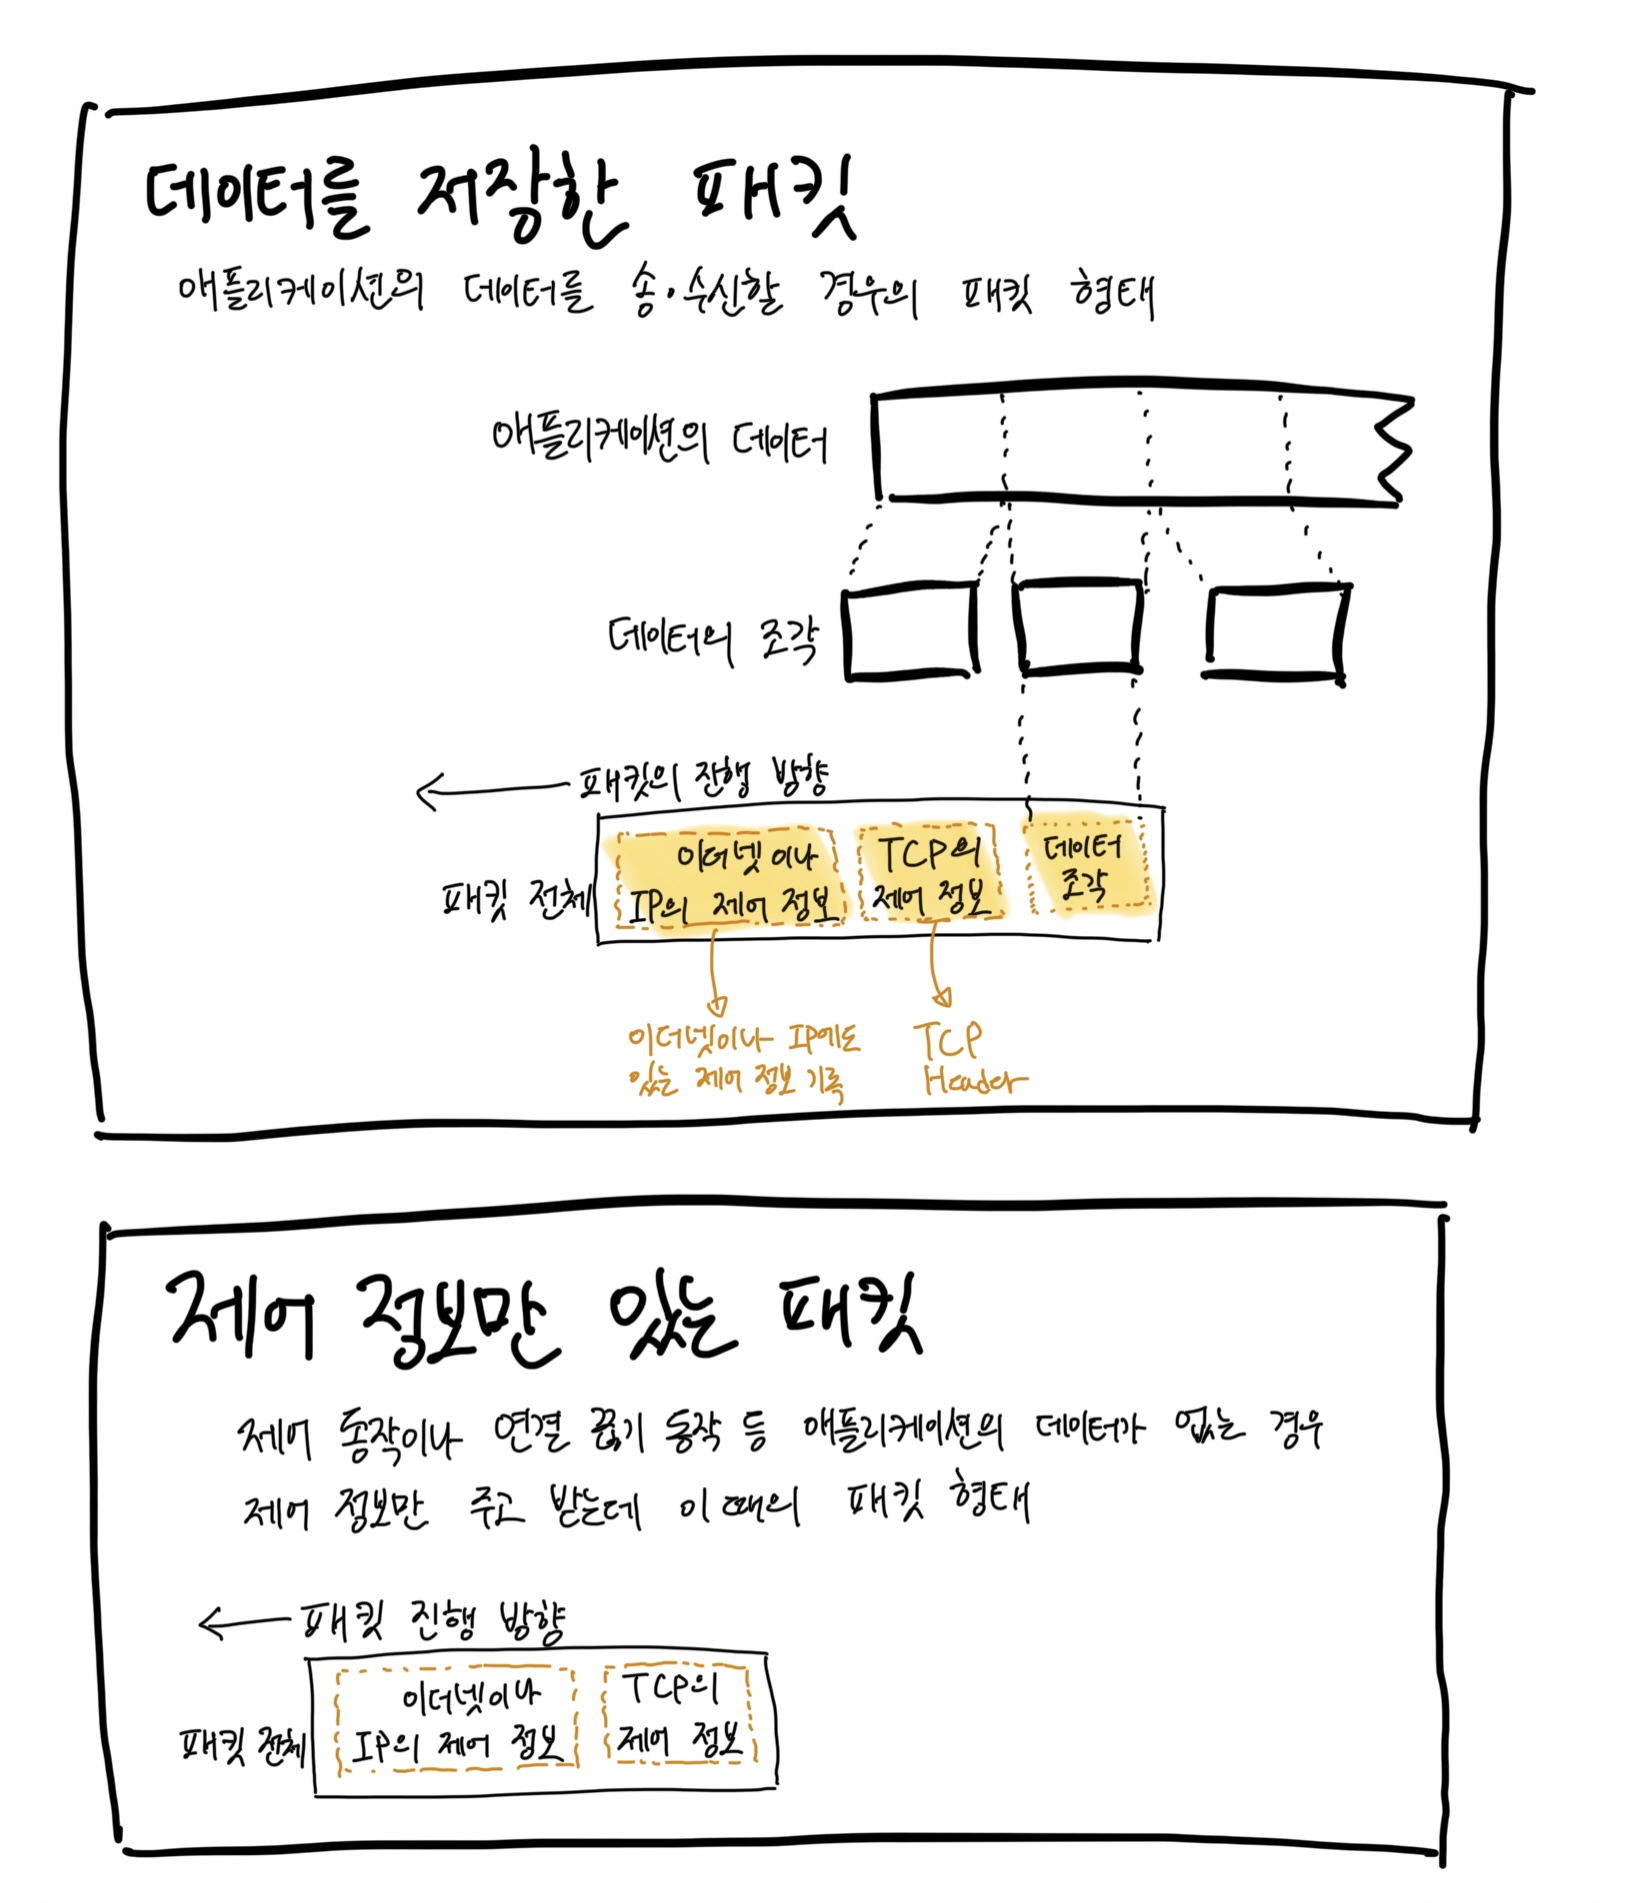 데이터를 저장한 패킷
애플리케이션의 데이터를 송·수신할 경우의 패킷 형태
애플리케이션의 데이터
데이터의 조각
패킷의 진행 방향
패킷 전체
이더넷이나
IP의 제어 정보
TCP의
제어 정보
데이터
조각
이더넷이나 IP에도
있는 제어 정보 기록
TCP
Header
제어 정보만 있는 패킷
제어 동작이나 연결 끊기 동작 등 애플리케이션의 데이터가 없는 경우
제어 정보만 주고 받는데 이 때의 패킷 형태
패킷 진행 방향
패킷 전체
이더넷이나
IP의 제어 정보
TCP의
제어 정보